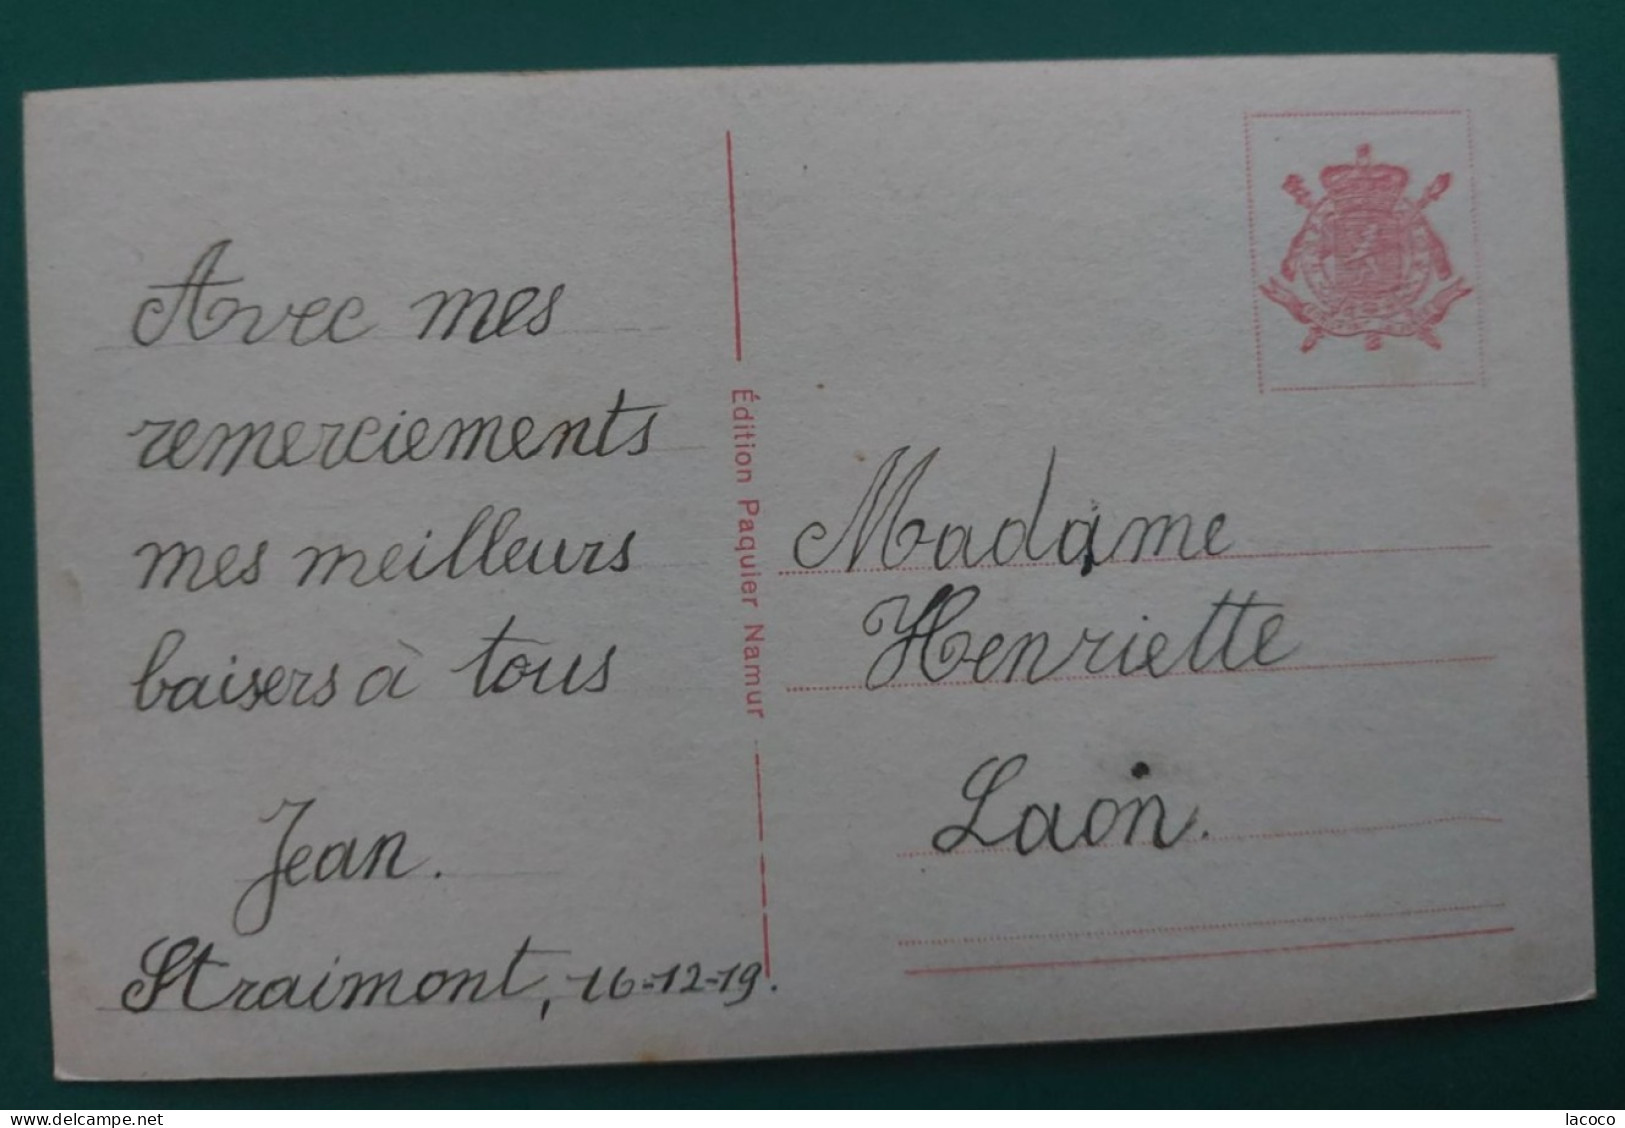 Avec mes
remerciements
mes meilleurs
baisers à tous
Jean.
Straimont, 16-12-19.
Édition Paquier Namur
Madame
Henriette
Laon.
www.delcampe.net
lacoco